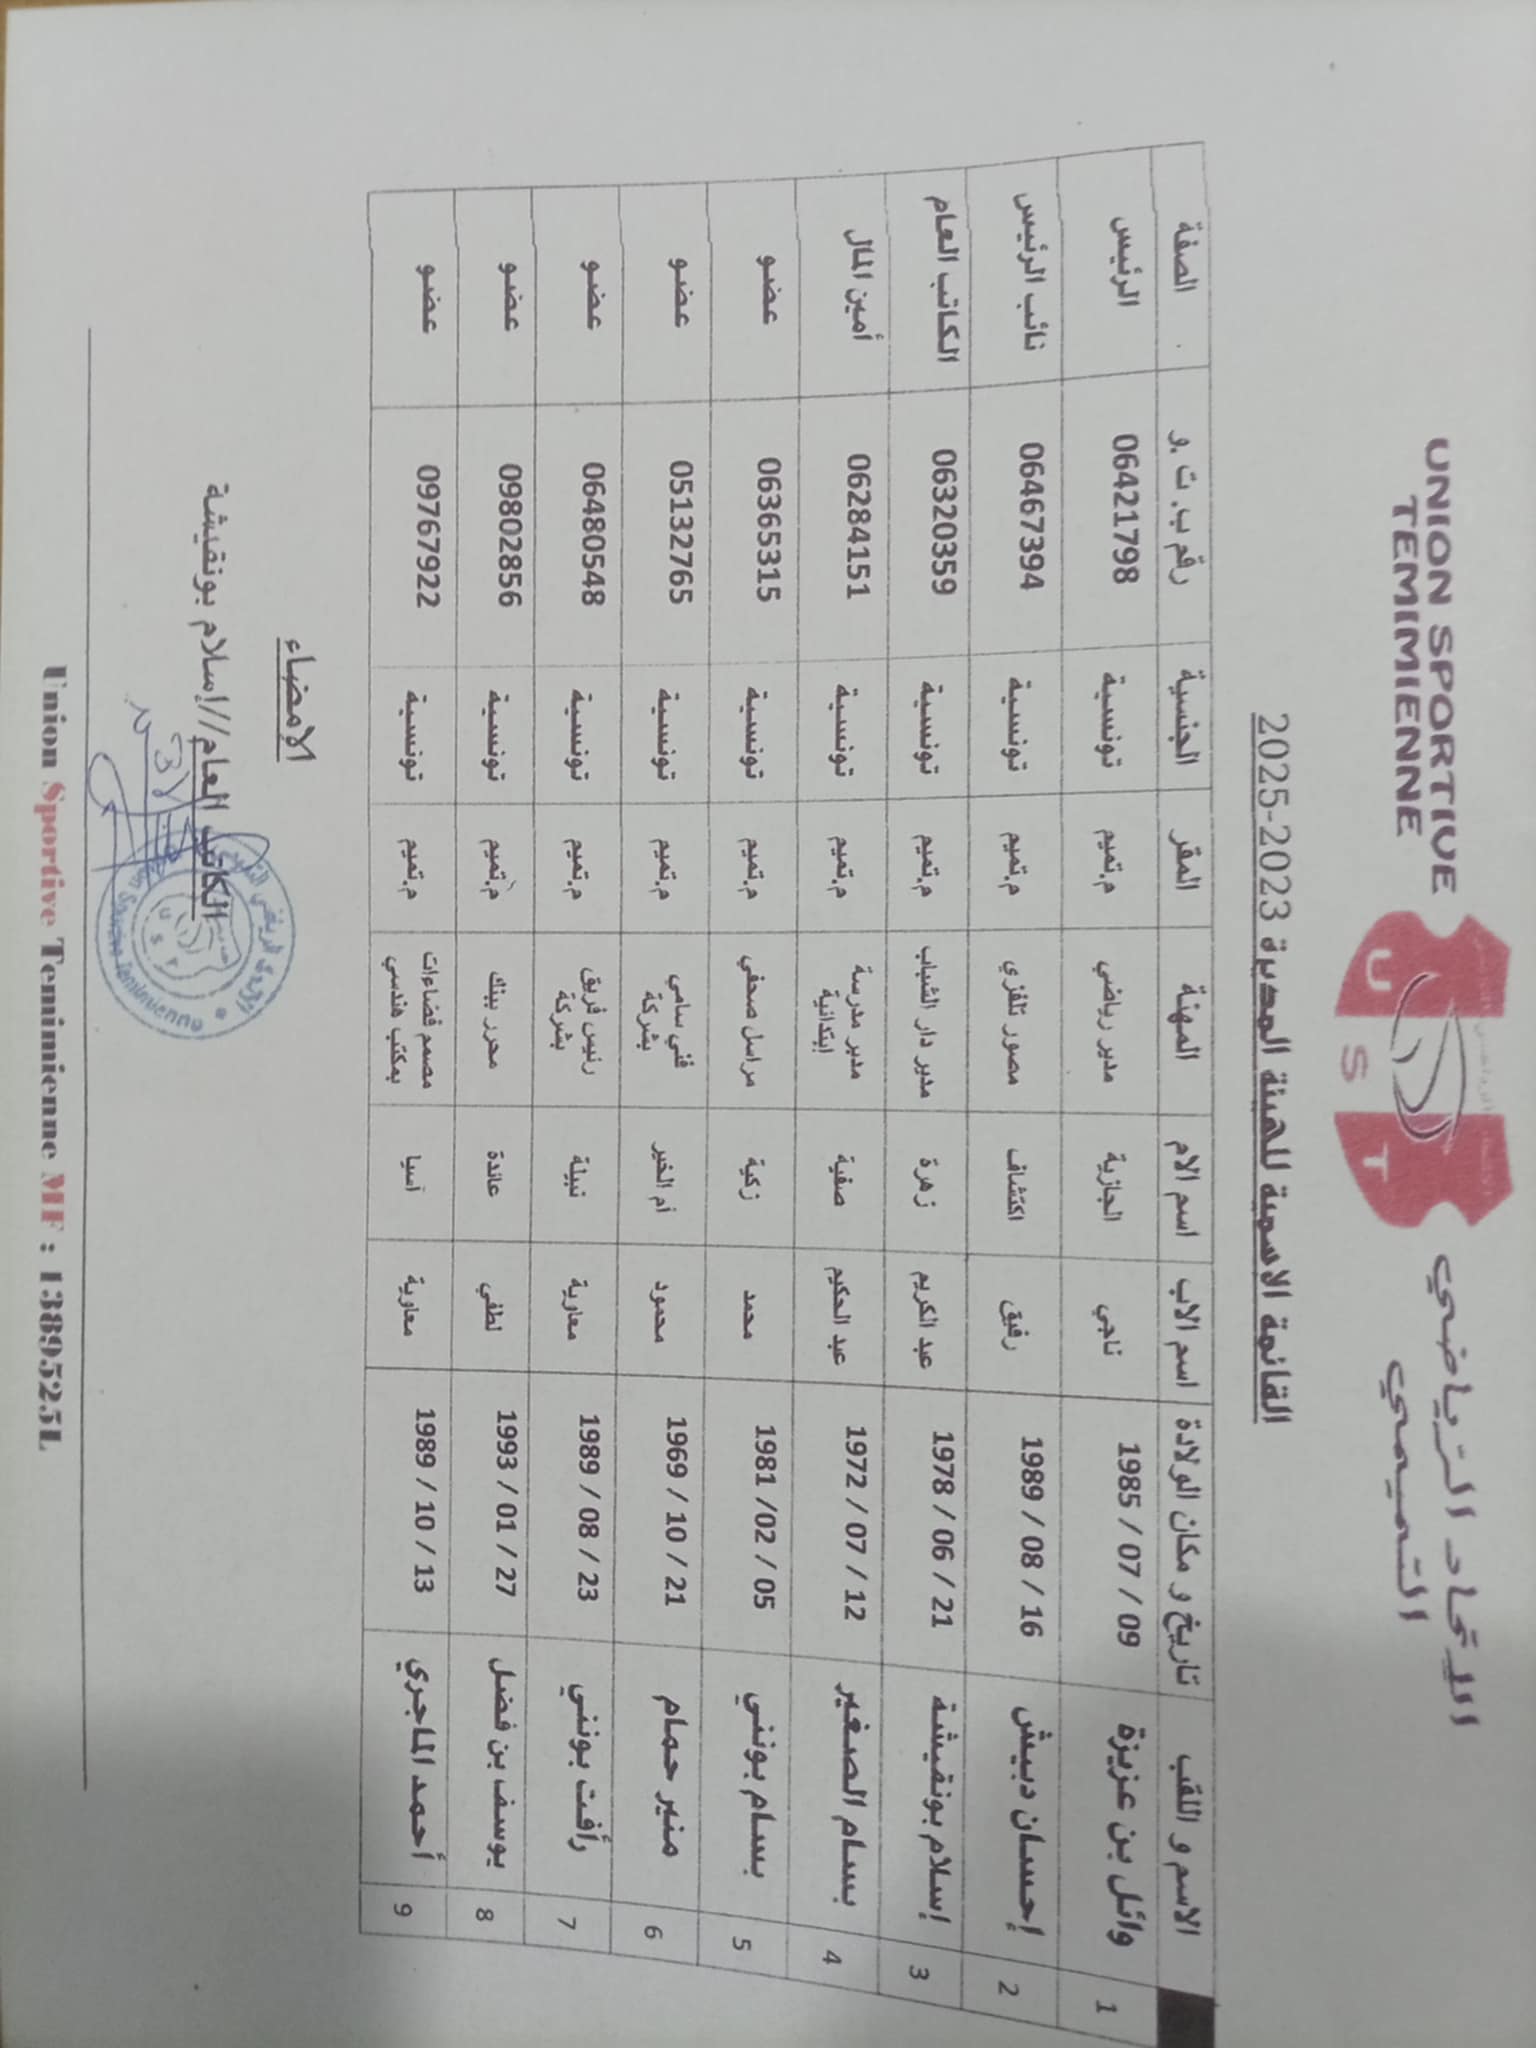 UNION SPORTIVE
TEMIMIENNE
U S T
الاتحاد الرياضي
التميمي
القائمة الاسمية للهيئة المديرة 2023-2025
الاسم و اللقب | تاريخ و مكان الولادة | اسم الاب | اسم الام | المهنة | المقر | الجنسية | رقم ب. ت .و | الصفة
1 | وائل بن عزيزة | 1985 / 07 / 09 | ناجي | الجازية | مدير رياضي | م.تميم | تونسية | 06421798 | الرئيس
2 | إحسان دبيش | 1989 / 08 / 16 | رفيق | اكتشاف | مصور تلفزي | م.تميم | تونسية | 06467394 | نائب الرئيس
3 | إسلام بونقيشة | 1978 / 06 / 21 | عبد الكريم | زهرة | مدير دار الشباب | م.تميم | تونسية | 06320359 | الكاتب العام
4 | بسام الصغير | 1972 / 07 / 12 | عبد الحكيم | صفية | مدير مدرسة إبتدائية | م.تميم | تونسية | 06284151 | أمين المال
5 | بسام بونني | 1981 /02 / 05 | محمد | زكية | مراسل صحفي | م.تميم | تونسية | 06365315 | عضو
6 | منير حمام | 1969 / 10 / 21 | محمود | أم الخير | فني سامي بشركة | م.تميم | تونسية | 05132765 | عضو
7 | رأفت بونني | 1989 / 08 / 23 | معاوية | نبيلة | رئيس فريق بشركة | م.تميم | تونسية | 06480548 | عضو
8 | يوسف بن فضل | 1993 / 01 / 27 | لطفي | عائدة | محرر ببنك | م.تميم | تونسية | 09802856 | عضو
9 | أحمد الماجري | 1989 / 10 / 13 | معاوية | آسيا | مصمم فضاءات بمكتب هندسي | م.تميم | تونسية | 09767922 | عضو
الإمضاء
الكاتب العام//إسلام بونقيشة
Union Sportive Temimienne MF : 1389525L